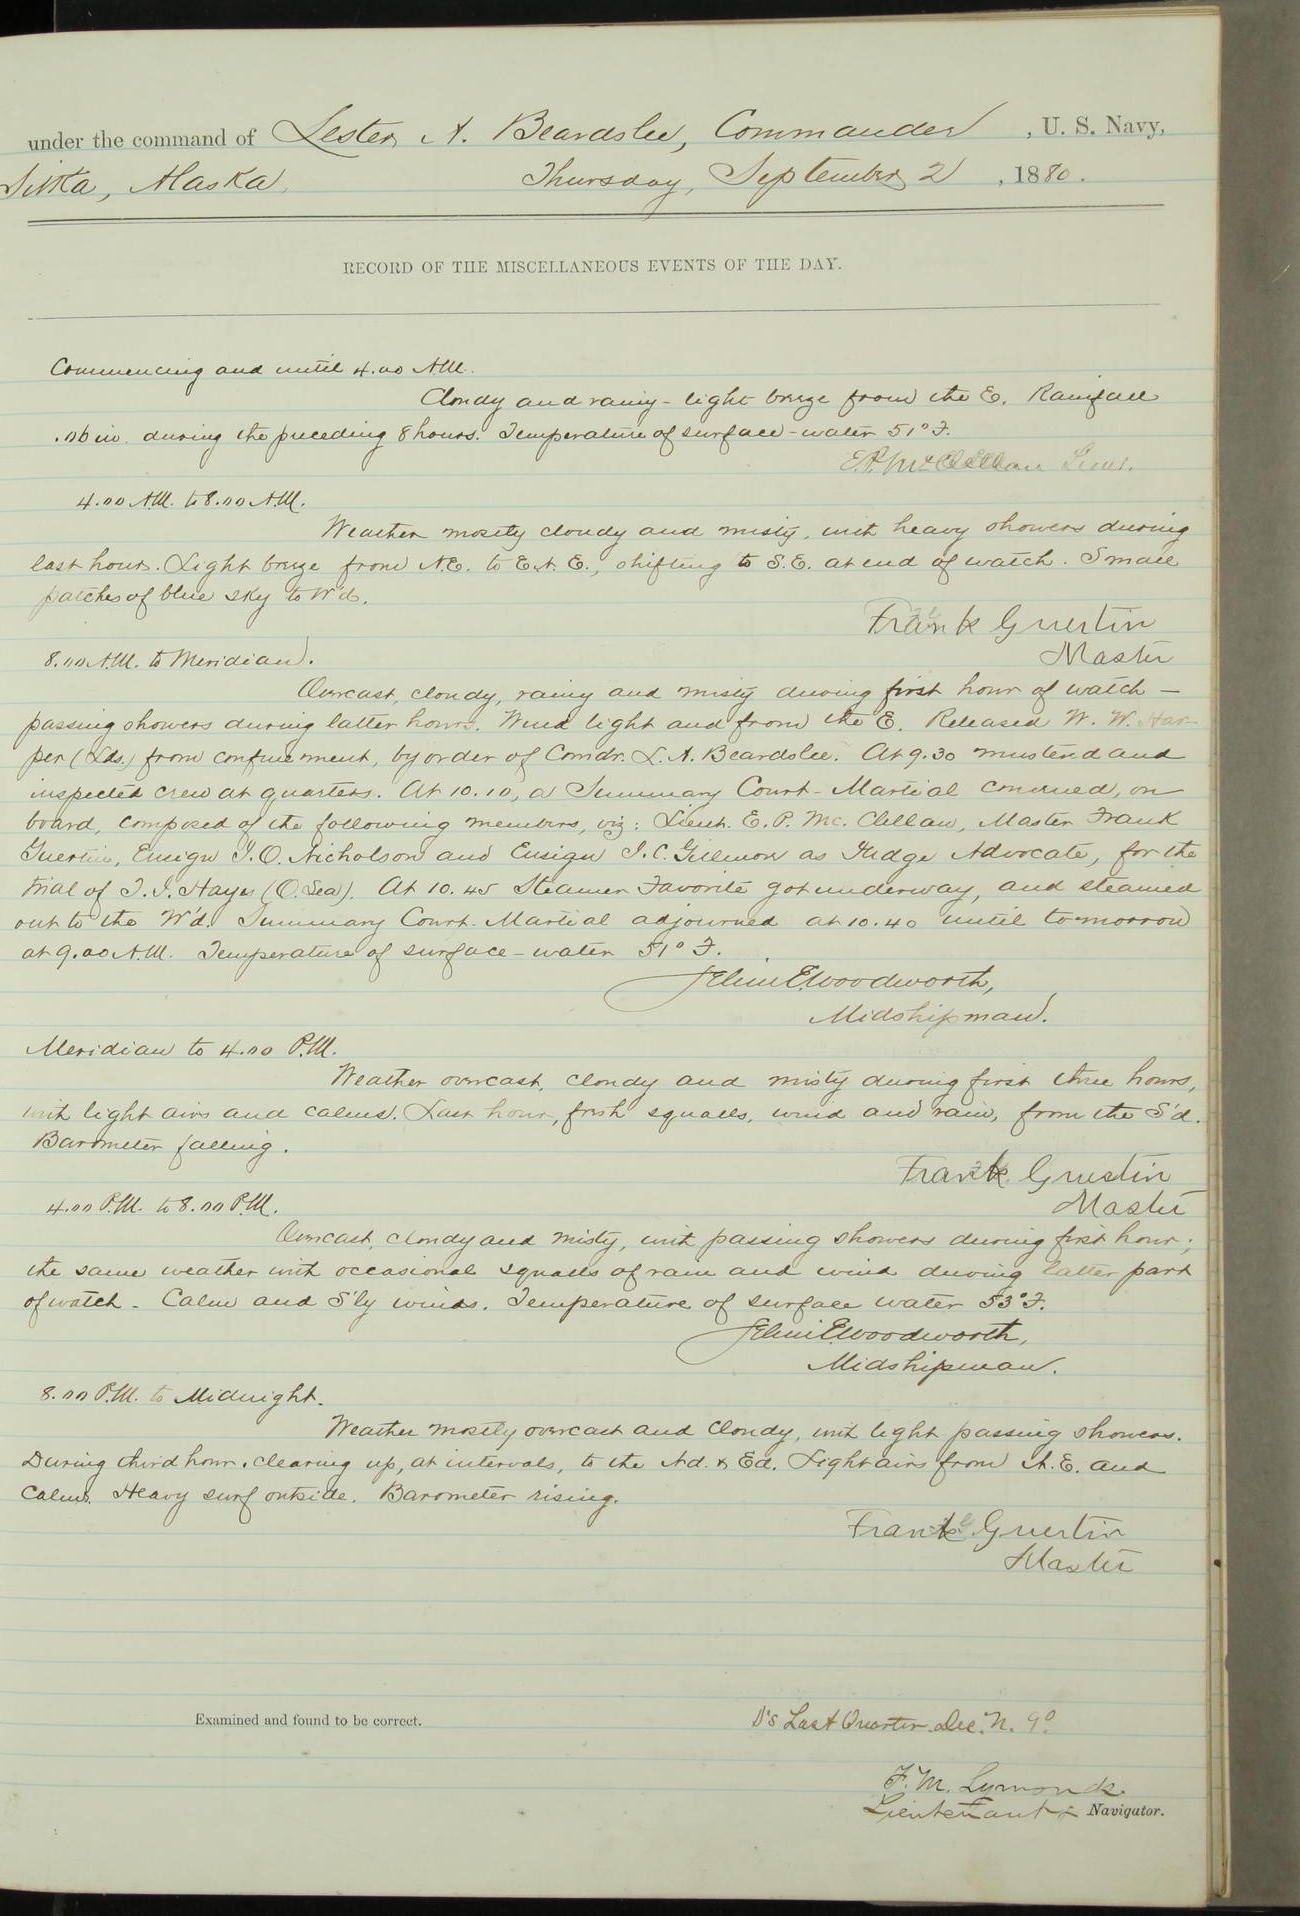 under the command of Lester A. Beardslee, Commander , U. S. Navy,
Sitka, Alaska, Thursday, September 2 , 1880.
RECORD OF THE MISCELLANEOUS EVENTS OF THE DAY.
Commencing and until 4.00 A.M.
Cloudy and rainy - light breeze from the E. Rainfall
.06 in. during the preceding 8 hours. Temperature of surface-water 51° F.
E.P. McClellan Lieut.
4.00 A.M. to 8.00 A.M.
Weather mostly cloudy and misty, with heavy showers during
last hour. Light breeze from N.E. to E.N.E., shifting to S.E. at end of watch. Small
patches of blue sky to W'd.
Frank Guertin
Master
8.00 A.M. to Meridian.
Overcast, cloudy, rainy and misty during first hour of watch —
passing showers during latter hours. Wind light and from the E. Released W. W. Har-
per (Lds.) from confinement, by order of Comdr. L. A. Beardslee. At 9.30 mustered and
inspected crew at quarters. At 10.10, a Summary Court-Martial convened, on
board, composed of the following members, viz: Lieut. E. P. McClellan, Master Frank
Guertin, Ensign J. O. Nicholson and Ensign J. C. Gillmore as Judge Advocate, for the
trial of T. J. Hayes (O. Sea). At 10.45 Steamer Favorite got underway, and steamed
out to the W'd. Summary Court-Martial adjourned at 10.40 until tomorrow
at 9.00 A.M. Temperature of surface-water 51° F.
Selim E. Woodworth,
Midshipman.
Meridian to 4.00 P.M.
Weather overcast, cloudy and misty during first three hours,
with light airs and calms. Last hour, fresh squalls, wind and rain, from the S'd.
Barometer falling.
Frank Guertin
Master
4.00 P.M. to 8.00 P.M.
Overcast, cloudy and misty, with passing showers during first hour;
the same weather with occasional squalls of rain and wind during latter part
of watch - Calm and S'ly winds. Temperature of surface water 53° F.
Selim E. Woodworth,
Midshipman.
8.00 P.M. to Midnight.
Weather mostly overcast and cloudy, with light passing showers.
During third hour, clearing up, at intervals, to the Nd. & Ed. Light airs from N.E. and
calms. Heavy surf outside. Barometer rising.
Frank Guertin
Master
Examined and found to be correct. D's Last Quarter. Dec. N. 9°
F. M. Symonds
Lieutenant & Navigator.